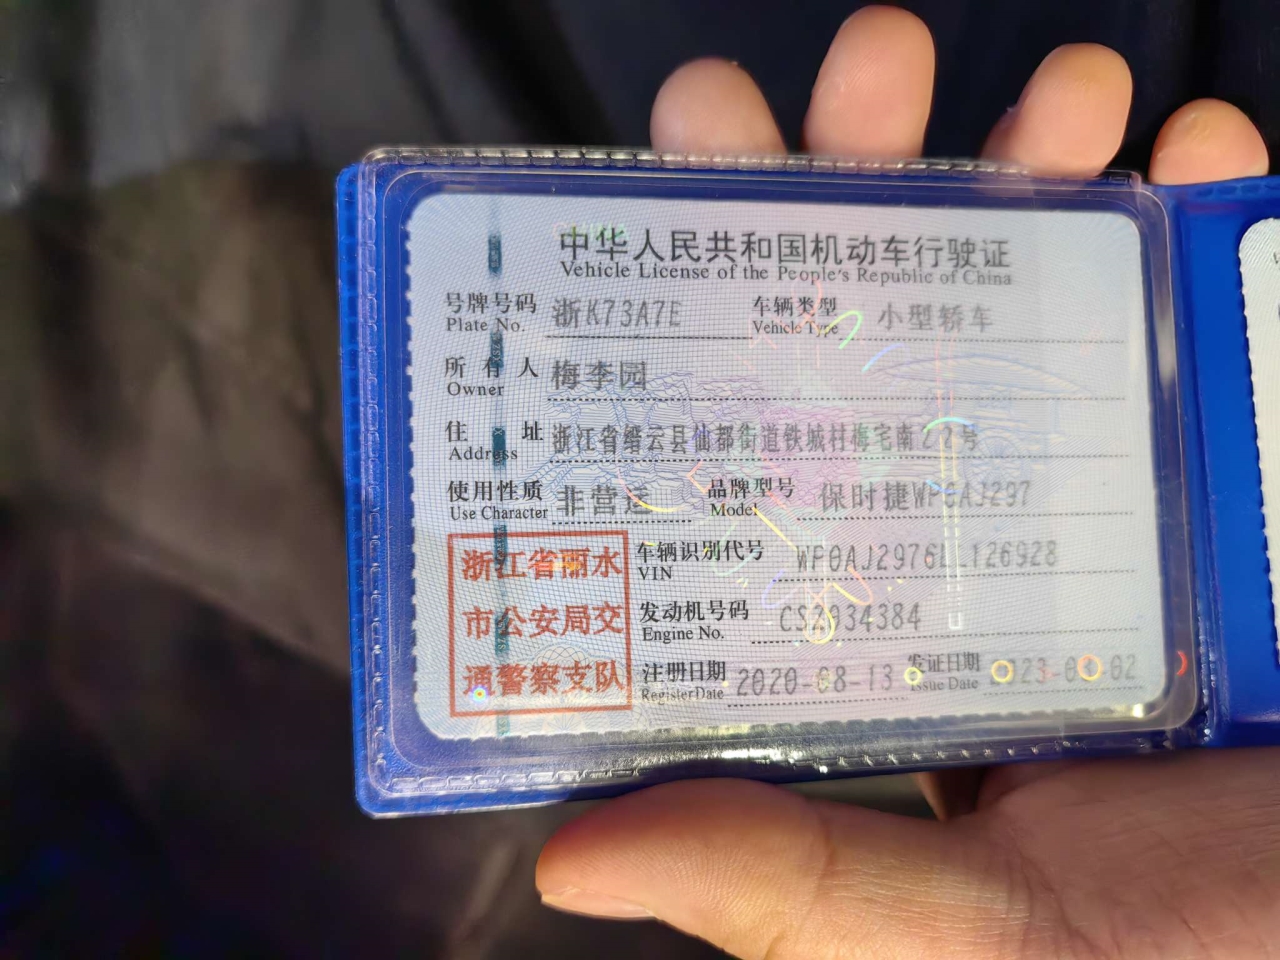 中华人民共和国机动车行驶证
Vehicle License of the People's Republic of China
号牌号码 浙K73A7E 车辆类型 小型轿车
Plate No. Vehicle Type
所有人 梅李园
Owner
住址 浙江省缙云县仙都街道铁城村梅宅南22号
Address
使用性质 非营运 品牌型号 保时捷WP0AJ297
Use Character Model
浙江省丽水
市公安局交
通警察支队
车辆识别代号
VIN
发动机号码 CS2034384
Engine No.
注册日期 2020-08-13 发证日期
Register Date Issue Date